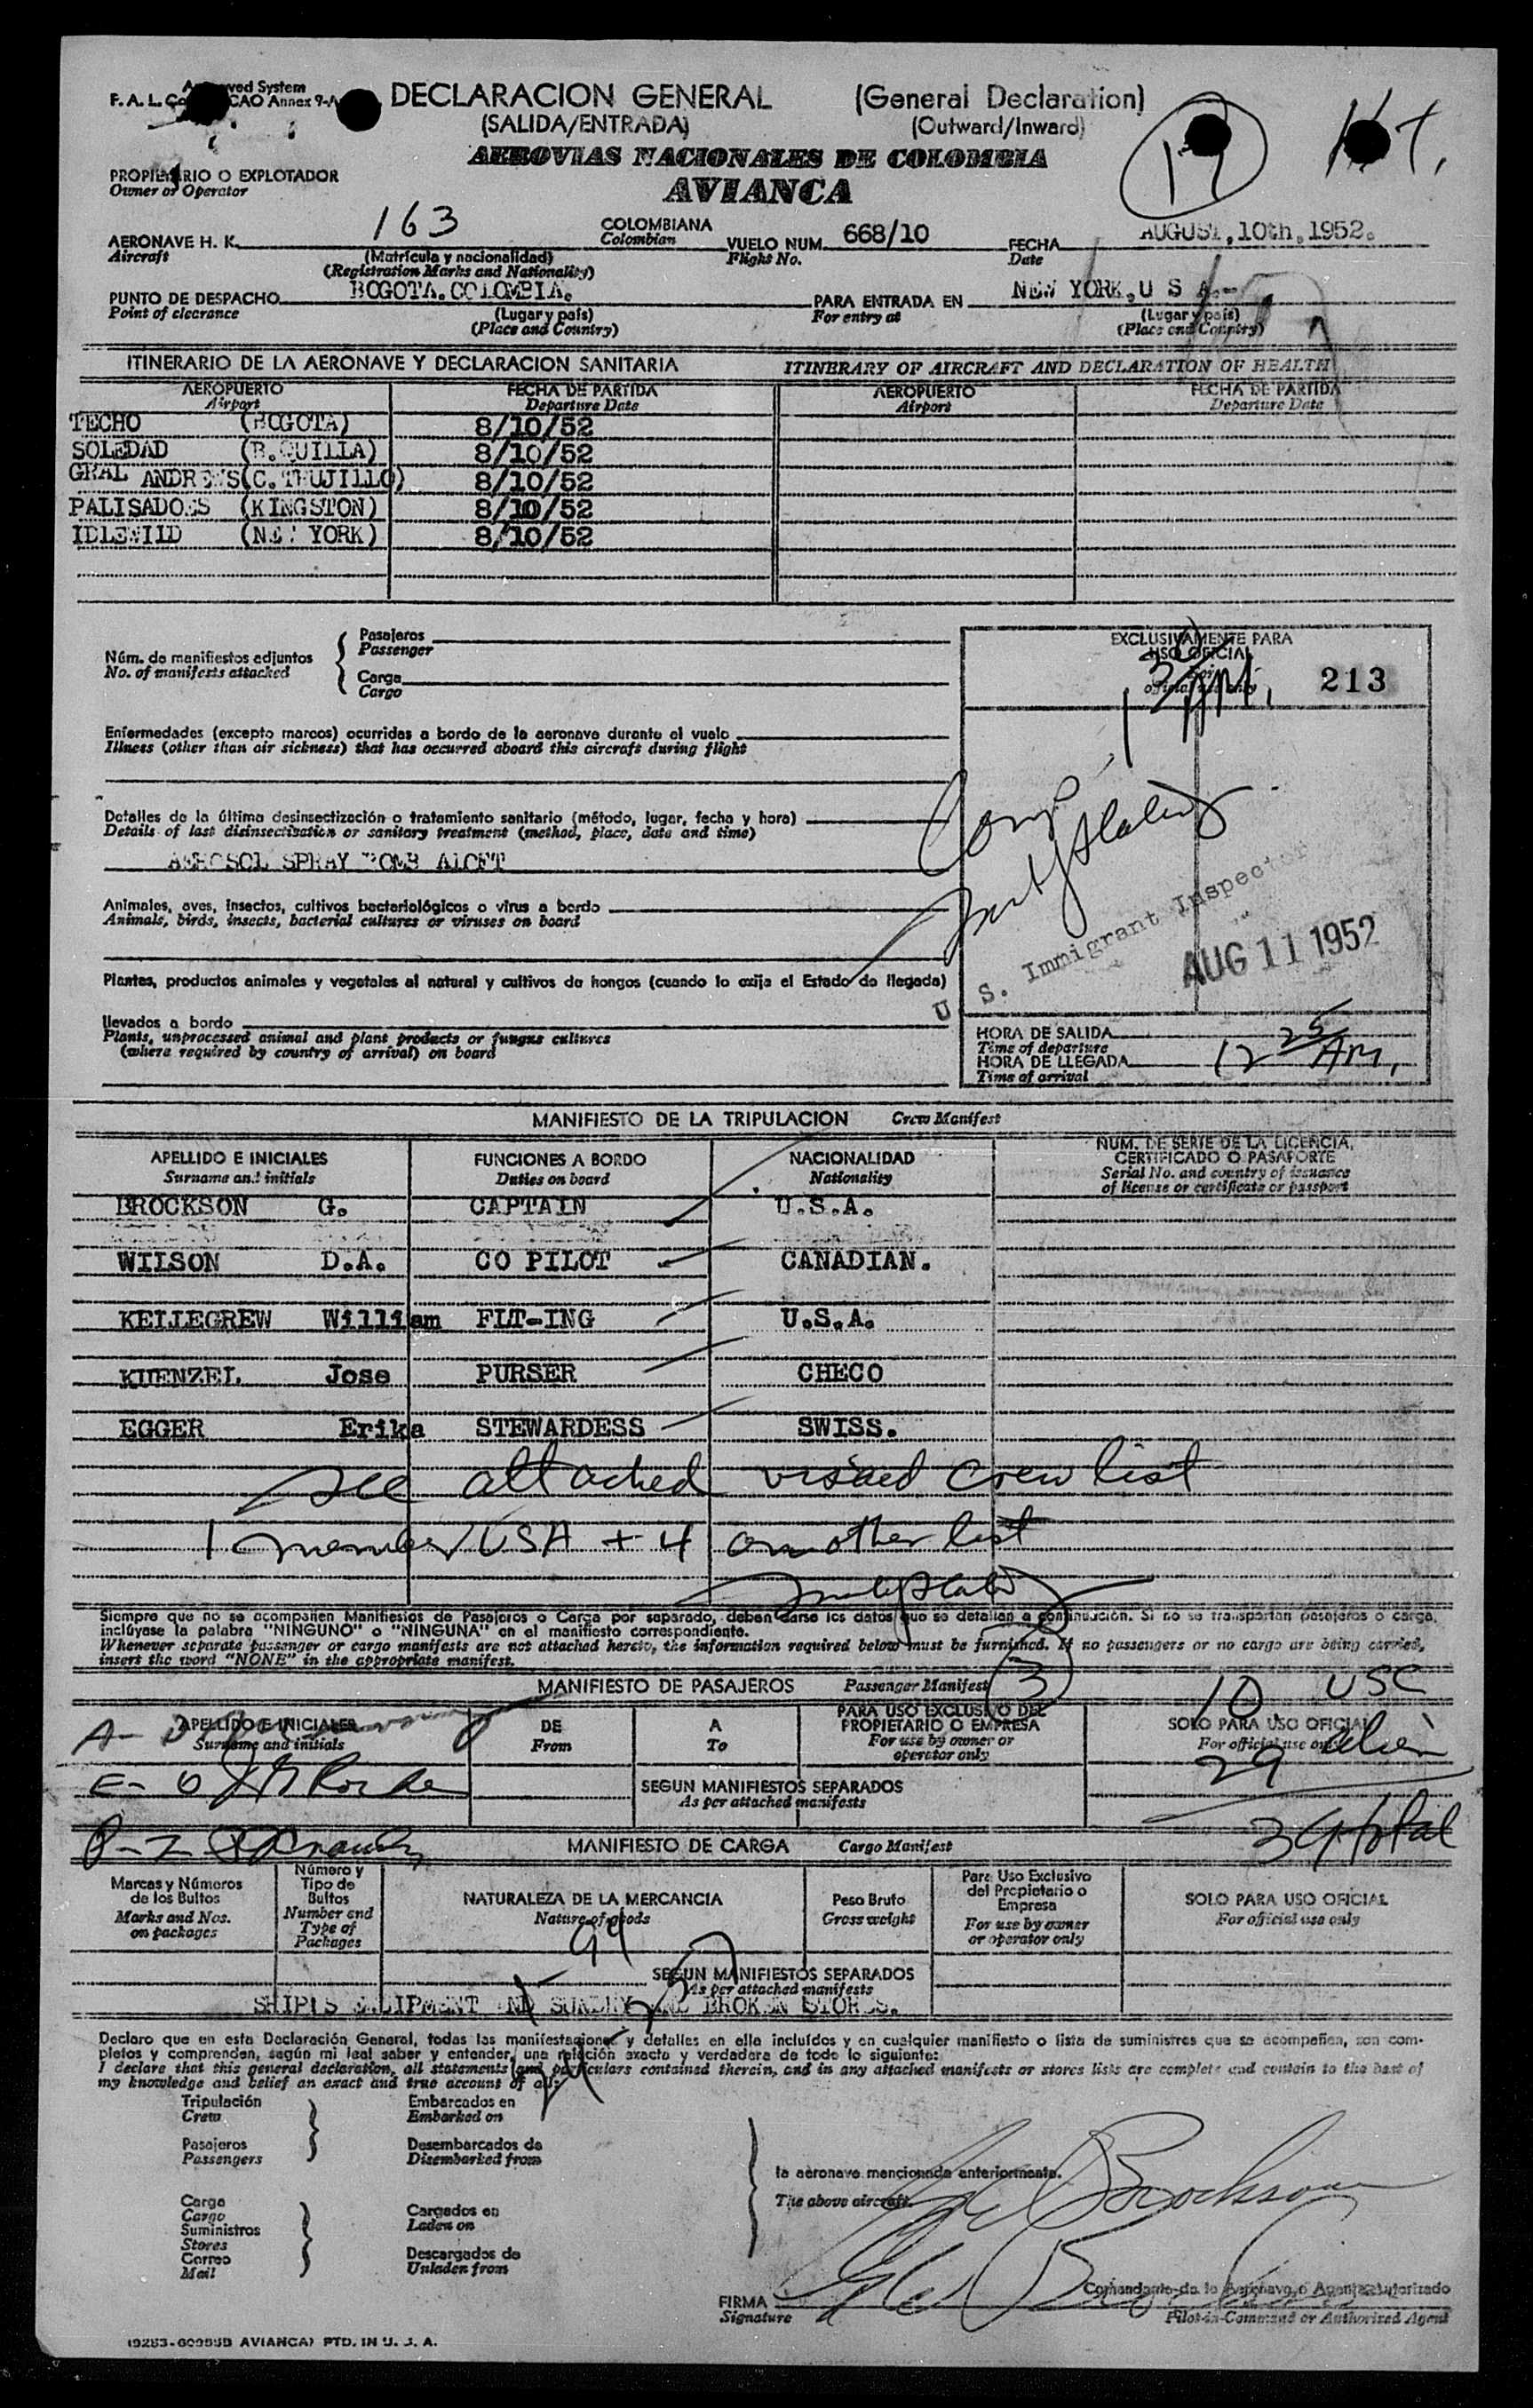 DECLARACION GENERAL (General Declaration)
(SALIDA/ENTRADA) (Outward/Inward)
AEROVIAS NACIONALES DE COLOMBIA
AVIANCA
17
PROPIETARIO O EXPLOTADOR
Owner or Operator
AERONAVE H. K. 163 COLOMBIANA VUELO NUM. 668/10 FECHA AUGUST, 10th, 1952.
Aircraft (Matrícula y nacionalidad) Colombian Flight No. Date
(Registration Marks and Nationality)
PUNTO DE DESPACHO BOGOTA.COLOMBIA. PARA ENTRADA EN NEW YORK,U S A.-
Point of clearance (Lugar y país) For entry at (Lugar y país)
(Place and Country) (Place and Country)
ITINERARIO DE LA AERONAVE Y DECLARACION SANITARIA ITINERARY OF AIRCRAFT AND DECLARATION OF HEALTH
AEROPUERTO FECHA DE PARTIDA AEROPUERTO FECHA DE PARTIDA
Airport Departure Date Airport Departure Date
TECHO (BOGOTA) 8/10/52
SOLEDAD (B.QUILLA) 8/10/52
GRAL ANDREWS(C.TRUJILLO) 8/10/52
PALISADOES (KINGSTON) 8/10/52
IDLEWILD (NEW YORK) 8/10/52
Núm. de manifiestos adjuntos
No. of manifests attached
Pasajeros
Passenger
Carga
Cargo
EXCLUSIVAMENTE PARA
USO OFICIAL
213
Enfermedades (excepto mareos) ocurridas a bordo de la aeronave durante el vuelo
Illness (other than air sickness) that has occurred aboard this aircraft during flight
Detalles de la última desinsectización o tratamiento sanitario (método, lugar, fecha y hora)
Details of last disinsectization or sanitary treatment (method, place, date and time)
AEROSOL SPRAY BOMB ALOFT
Animales, aves, insectos, cultivos bacteriológicos o virus a bordo
Animals, birds, insects, bacterial cultures or viruses on board
U. S. Immigrant Inspector
AUG 11 1952
Plantas, productos animales y vegetales al natural y cultivos de hongos (cuando lo exija el Estado de llegada)
llevados a bordo
Plants, unprocessed animal and plant products or fungus cultures
(where required by country of arrival) on board
HORA DE SALIDA
Time of departure
HORA DE LLEGADA 12 25 AM.
Time of arrival
MANIFIESTO DE LA TRIPULACION Crew Manifest
APELLIDO E INICIALES FUNCIONES A BORDO NACIONALIDAD NUM. DE SERIE DE LA LICENCIA,
CERTIFICADO O PASAPORTE
Surname and initials Duties on board Nationality Serial No. and country of issuance
of license or certificate or passport
BROCKSON G. CAPTAIN U.S.A.
WILSON D.A. CO PILOT CANADIAN.
KELLEGREW William FLT-ING U.S.A.
KUENZEL Jose PURSER CHECO
EGGER Erika STEWARDESS SWISS.
see attached visaed crew list
1 member USA + 4 on other list
Siempre que no se acompañen Manifiestos de Pasajeros o Carga por separado, deben darse los datos que se detallan a continuación. Si no se transportan pasajeros o carga,
inclúyase la palabra "NINGUNO" o "NINGUNA" en el manifiesto correspondiente.
Whenever separate passenger or cargo manifests are not attached hereto, the information required below must be furnished. If no passengers or no cargo are being carried,
insert the word "NONE" in the appropriate manifest.
MANIFIESTO DE PASAJEROS Passenger Manifest 3 10 USC
APELLIDO E INICIALES DE A PARA USO EXCLUSIVO DEL
PROPIETARIO O EMPRESA SOLO PARA USO OFICIAL
Surname and initials From To For use by owner or
operator only For official use only
29 alien
SEGUN MANIFIESTOS SEPARADOS
As per attached manifests
39 total
MANIFIESTO DE CARGA Cargo Manifest
Marcas y Números
de los Bultos
Marks and Nos.
on packages
Número y
Tipo de
Bultos
Number and
Type of
Packages
NATURALEZA DE LA MERCANCIA
Nature of goods
Peso Bruto
Gross weight
Para Uso Exclusivo
del Propietario o
Empresa
For use by owner
or operator only
SOLO PARA USO OFICIAL
For official use only
SEGUN MANIFIESTOS SEPARADOS
As per attached manifests
SHIPIS EQUIPMENT AND SUNDRY AND BROKEN STORES.
Declaro que en esta Declaración General, todas las manifestaciones y detalles en ella incluídos y en cualquier manifiesto o lista de suministros que se acompañen, son com-
pletos y comprenden, según mi leal saber y entender, una relación exacta y verdadera de todo lo siguiente:
I declare that this general declaration, all statements and particulars contained therein, and in any attached manifests or stores lists are complete and contain to the best of
my knowledge and belief an exact and true account of all:
Tripulación
Crew
Pasajeros
Passengers
Embarcados en
Embarked on
Desembarcados de
Disembarked from
la aeronave mencionada anteriormente.
The above aircraft.
Carga
Cargo
Suministros
Stores
Correo
Mail
Cargados en
Laden on
Descargados de
Unladen from
FIRMA
Signature
Comandante de la Aeronave o Agente Autorizado
Pilot-in-Command or Authorized Agent